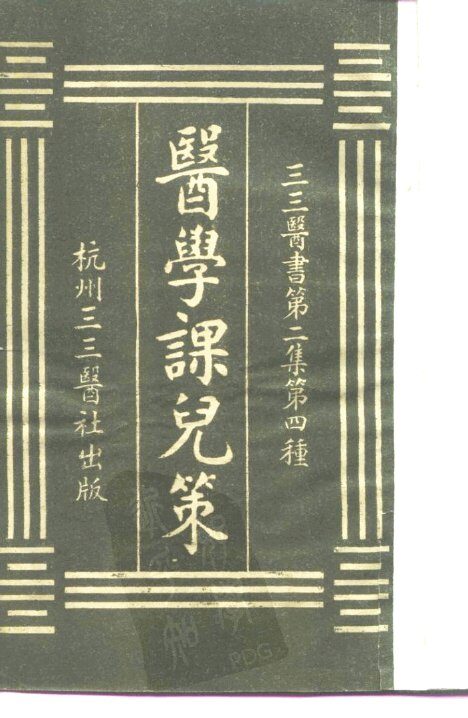 三三醫書第二集第四種
醫學課兒策
杭州三三醫社出版
PDG